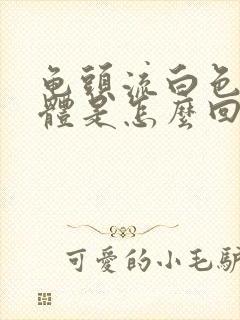 龟頭流白色
體是怎麼回
可愛的小毛驴